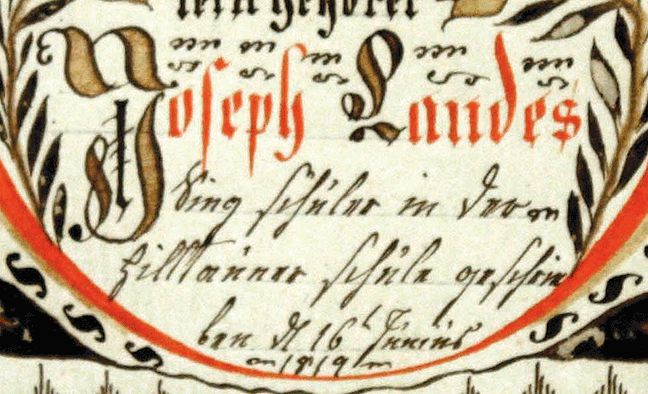 lein gehöret
Joseph Landes
Sing schüler in der
Hilltauner schule geschrie
ben d 16t Junius
1819